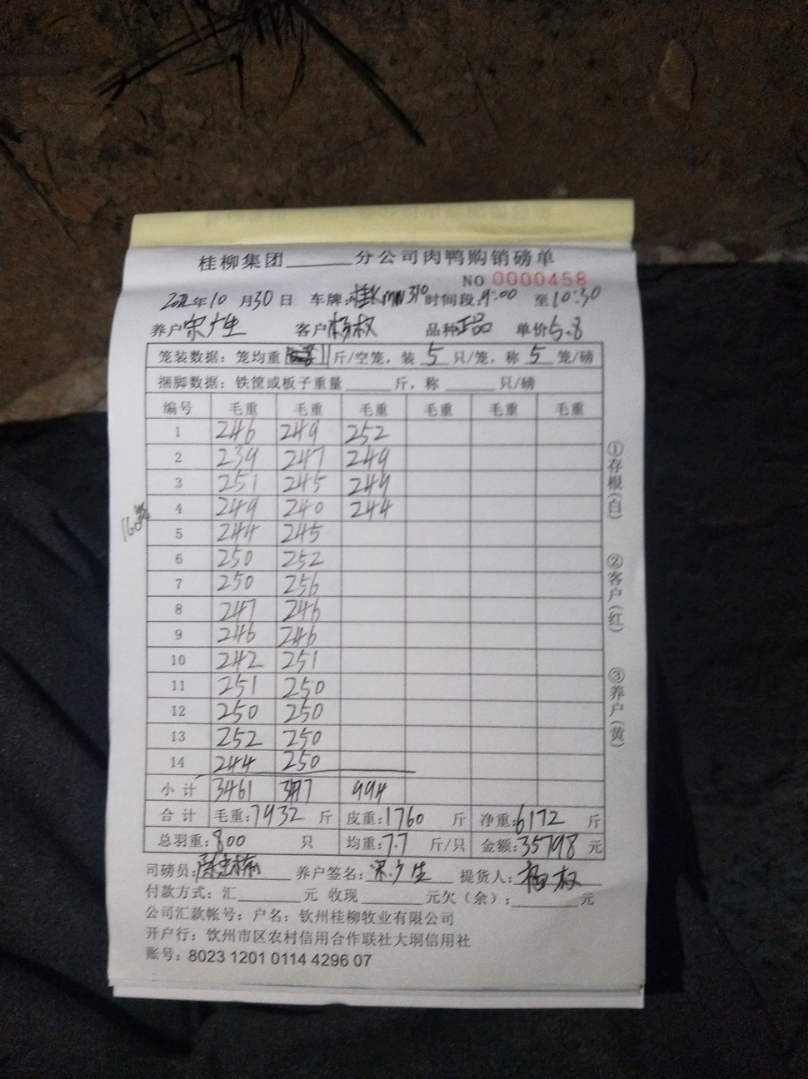 桂柳集团______分公司肉鸭购销磅单
NO 0000458
年10月30日 车牌: 310 时间段: 9:00 至10:30
养户 宋广生 客户 杨权 品种 正品 单价 5.8
笼装数据：笼均重 11 斤/空笼，装 5 只/笼，称 5 笼/磅
捆脚数据：铁筐或板子重量______斤，称______只/磅
编号 毛重 毛重 毛重 毛重 毛重 毛重
1 246 249 252
2 239 247 249
3 251 245 249
4 249 240 244
5 244 245
6 250 252
7 250 256
8 247 246
9 246 246
10 242 251
11 251 250
12 250 250
13 252 250
14 244 250
小计 3461 994
合计 毛重: 7932 斤 皮重: 1760 斤 净重: 6172 斤
总羽重: 800 只 均重: 7.7 斤/只 金额: 35798 元
司磅员: 养户签名: 宋广生 提货人: 杨权
付款方式：汇______元 收现______元欠（余）：______元
公司汇款帐号：户名：钦州桂柳牧业有限公司
开户行：钦州市区农村信用合作联社大垌信用社
账号：8023 1201 0114 4296 07
①存根(白)
②客户(红)
③养户(黄)